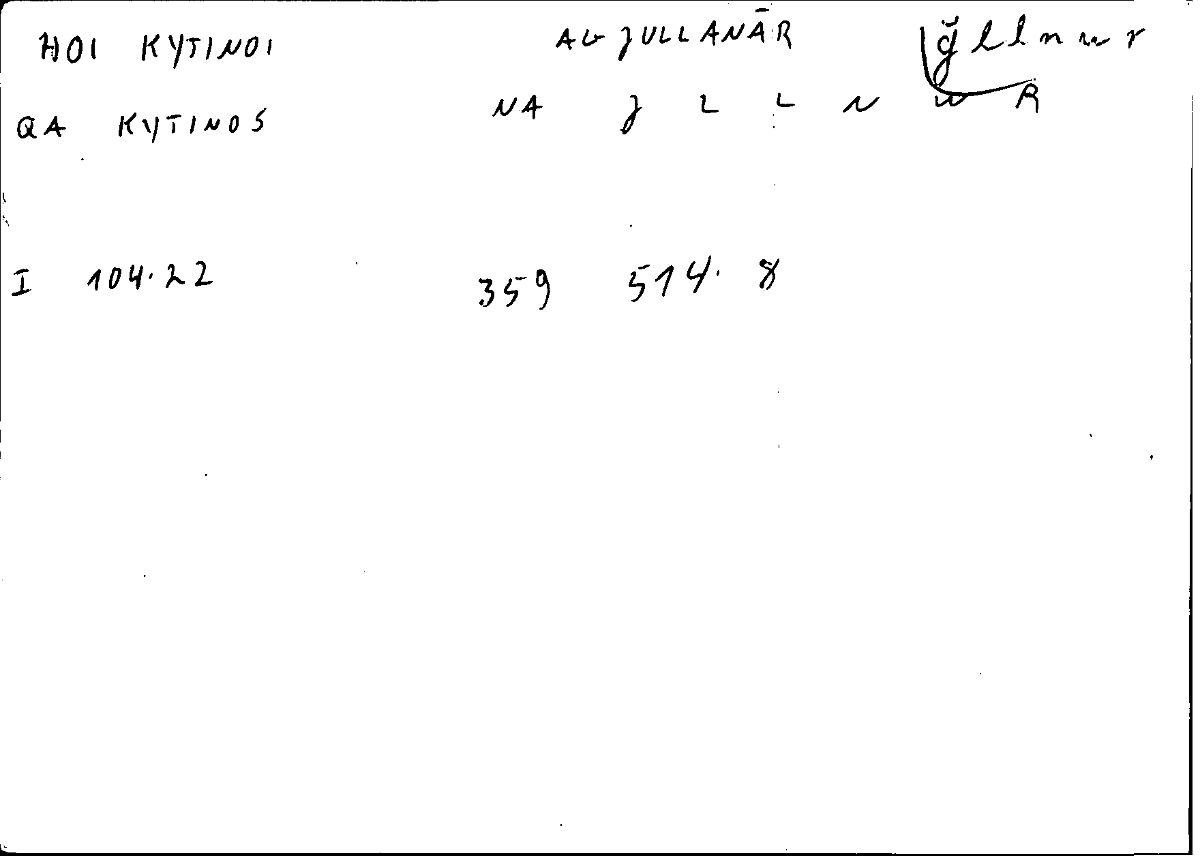 HOI KYTINOI AL JULLANĀR ǧllnwr
QA KYTINOS NA J L L N W R
I 104.22 359 514. 8